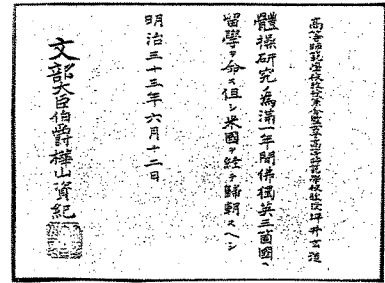 高等師範學校敎授兼女子高等師範學校敎授坪井玄道
體操研究ノ爲滿一年間佛獨英三箇國ヘ
留學ヲ命ス但シ米國ヲ經テ歸朝スヘシ
明治三十三年六月十二日
文部大臣伯爵樺山資紀